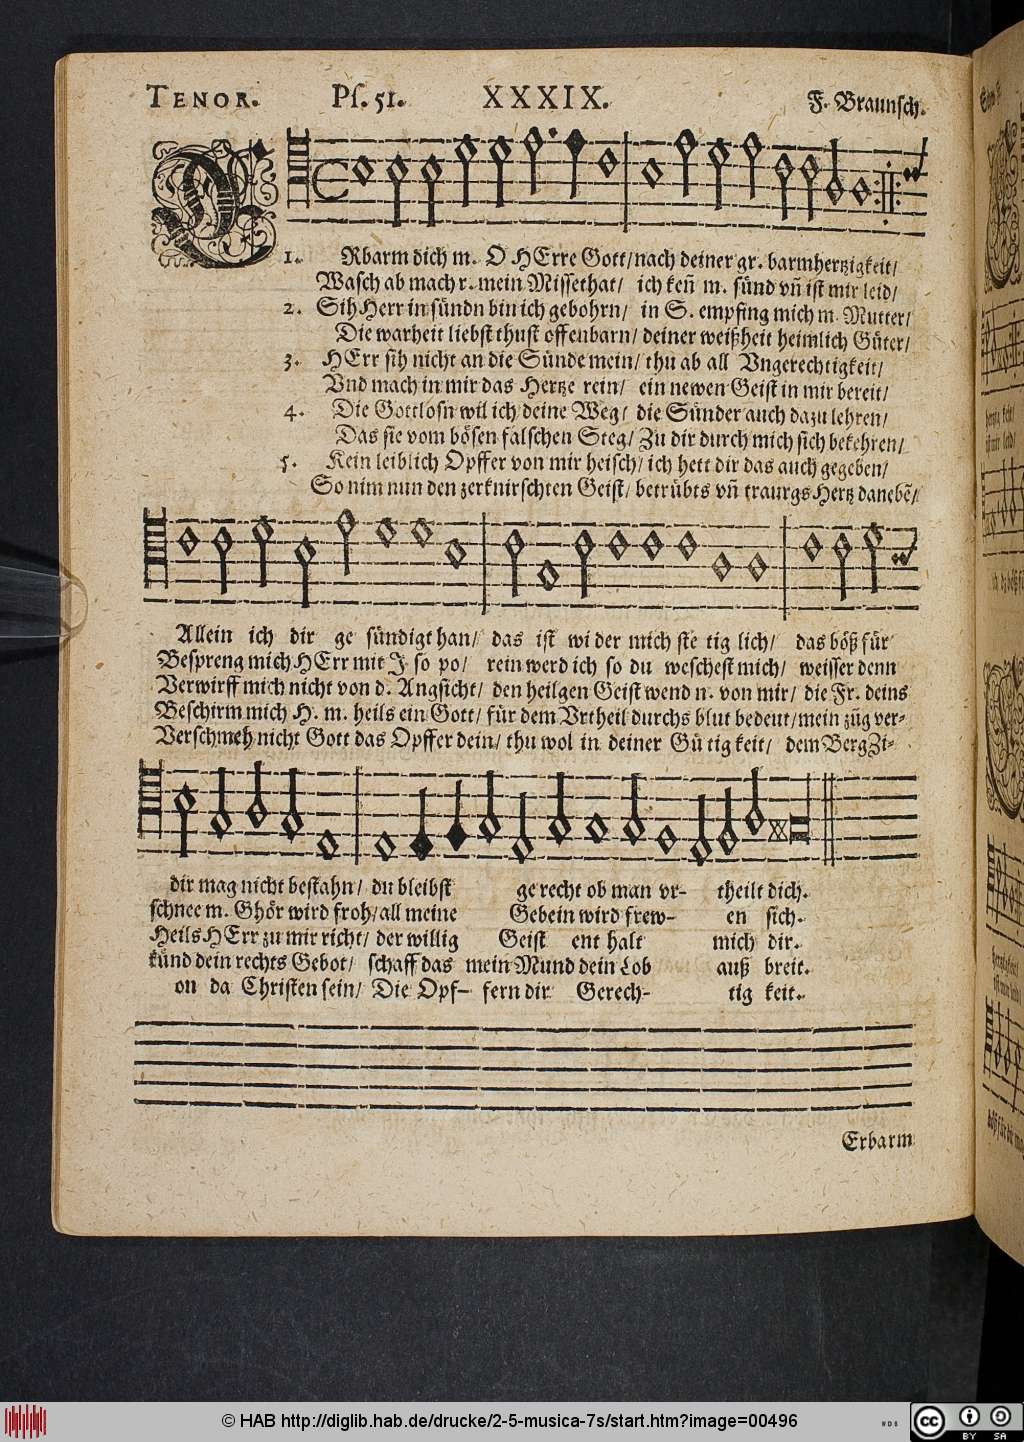 TENOR. Pſ. 51. XXXIX. F. Braunſch.
1. ERbarm dich m. O HErre Gott/ nach deiner gr. barmhertzigkeit/
Waſch ab mach r. mein Miſſethat/ ich keñ m. ſünd vñ iſt mir leid/
2. Sih Herr in ſündn bin ich gebohrn/ in S. empfing mich m. Mutter/
Die warheit liebſt thuſt offenbarn/ deiner weißheit heimlich Güter/
3. HErr ſih nicht an die Sünde mein/ thu ab all Vngerechtigkeit/
Vnd mach in mir das Hertze rein/ ein newen Geiſt in mir bereit/
4. Die Gottloſn wil ich deine Weg/ die Sünder auch dazu lehren/
Das ſie vom böſen falſchen Steg/ Zu dir durch mich ſich bekehren/
5. Kein leiblich Opffer von mir heiſch/ ich hett dir das auch gegeben/
So nim nun den zerknirſchten Geiſt/ betrübts vñ traurgs Hertz danebẽ/
Allein ich dir ge ſündigt han/ das iſt wi der mich ſte tig lich/ das böß für
Beſpreng mich HErr mit J ſo po/ rein werd ich ſo du weſcheſt mich/ weiſſer denn
Verwirff mich nicht von d. Angſicht/ den heilgen Geiſt wend n. von mir/ die Fr. deins
Beſchirm mich H. m. heils ein Gott/ für dem Vrtheil durchs blut bedeut/ mein züg ver-
Verſchmeh nicht Gott das Opffer dein/ thu wol in deiner Gü tig keit/ dem Berg Zi-
dir mag nicht beſtahn/ du bleibſt ge recht ob man vr- theilt dich.
ſchnee m. Ghör wird froh/ all meine Gebein wird frew- en ſich.
Heils HErr zu mir richt/ der willig Geiſt ent halt mich dir.
künd dein rechts Gebot/ ſchaff das mein Mund dein Lob auß breit.
on da Chriſten ſein/ Die Opf- fern dir Gerech- tig keit.
Erbarm
© HAB http://diglib.hab.de/drucke/2-5-musica-7s/start.htm?image=00496
WDB
cc BY SA